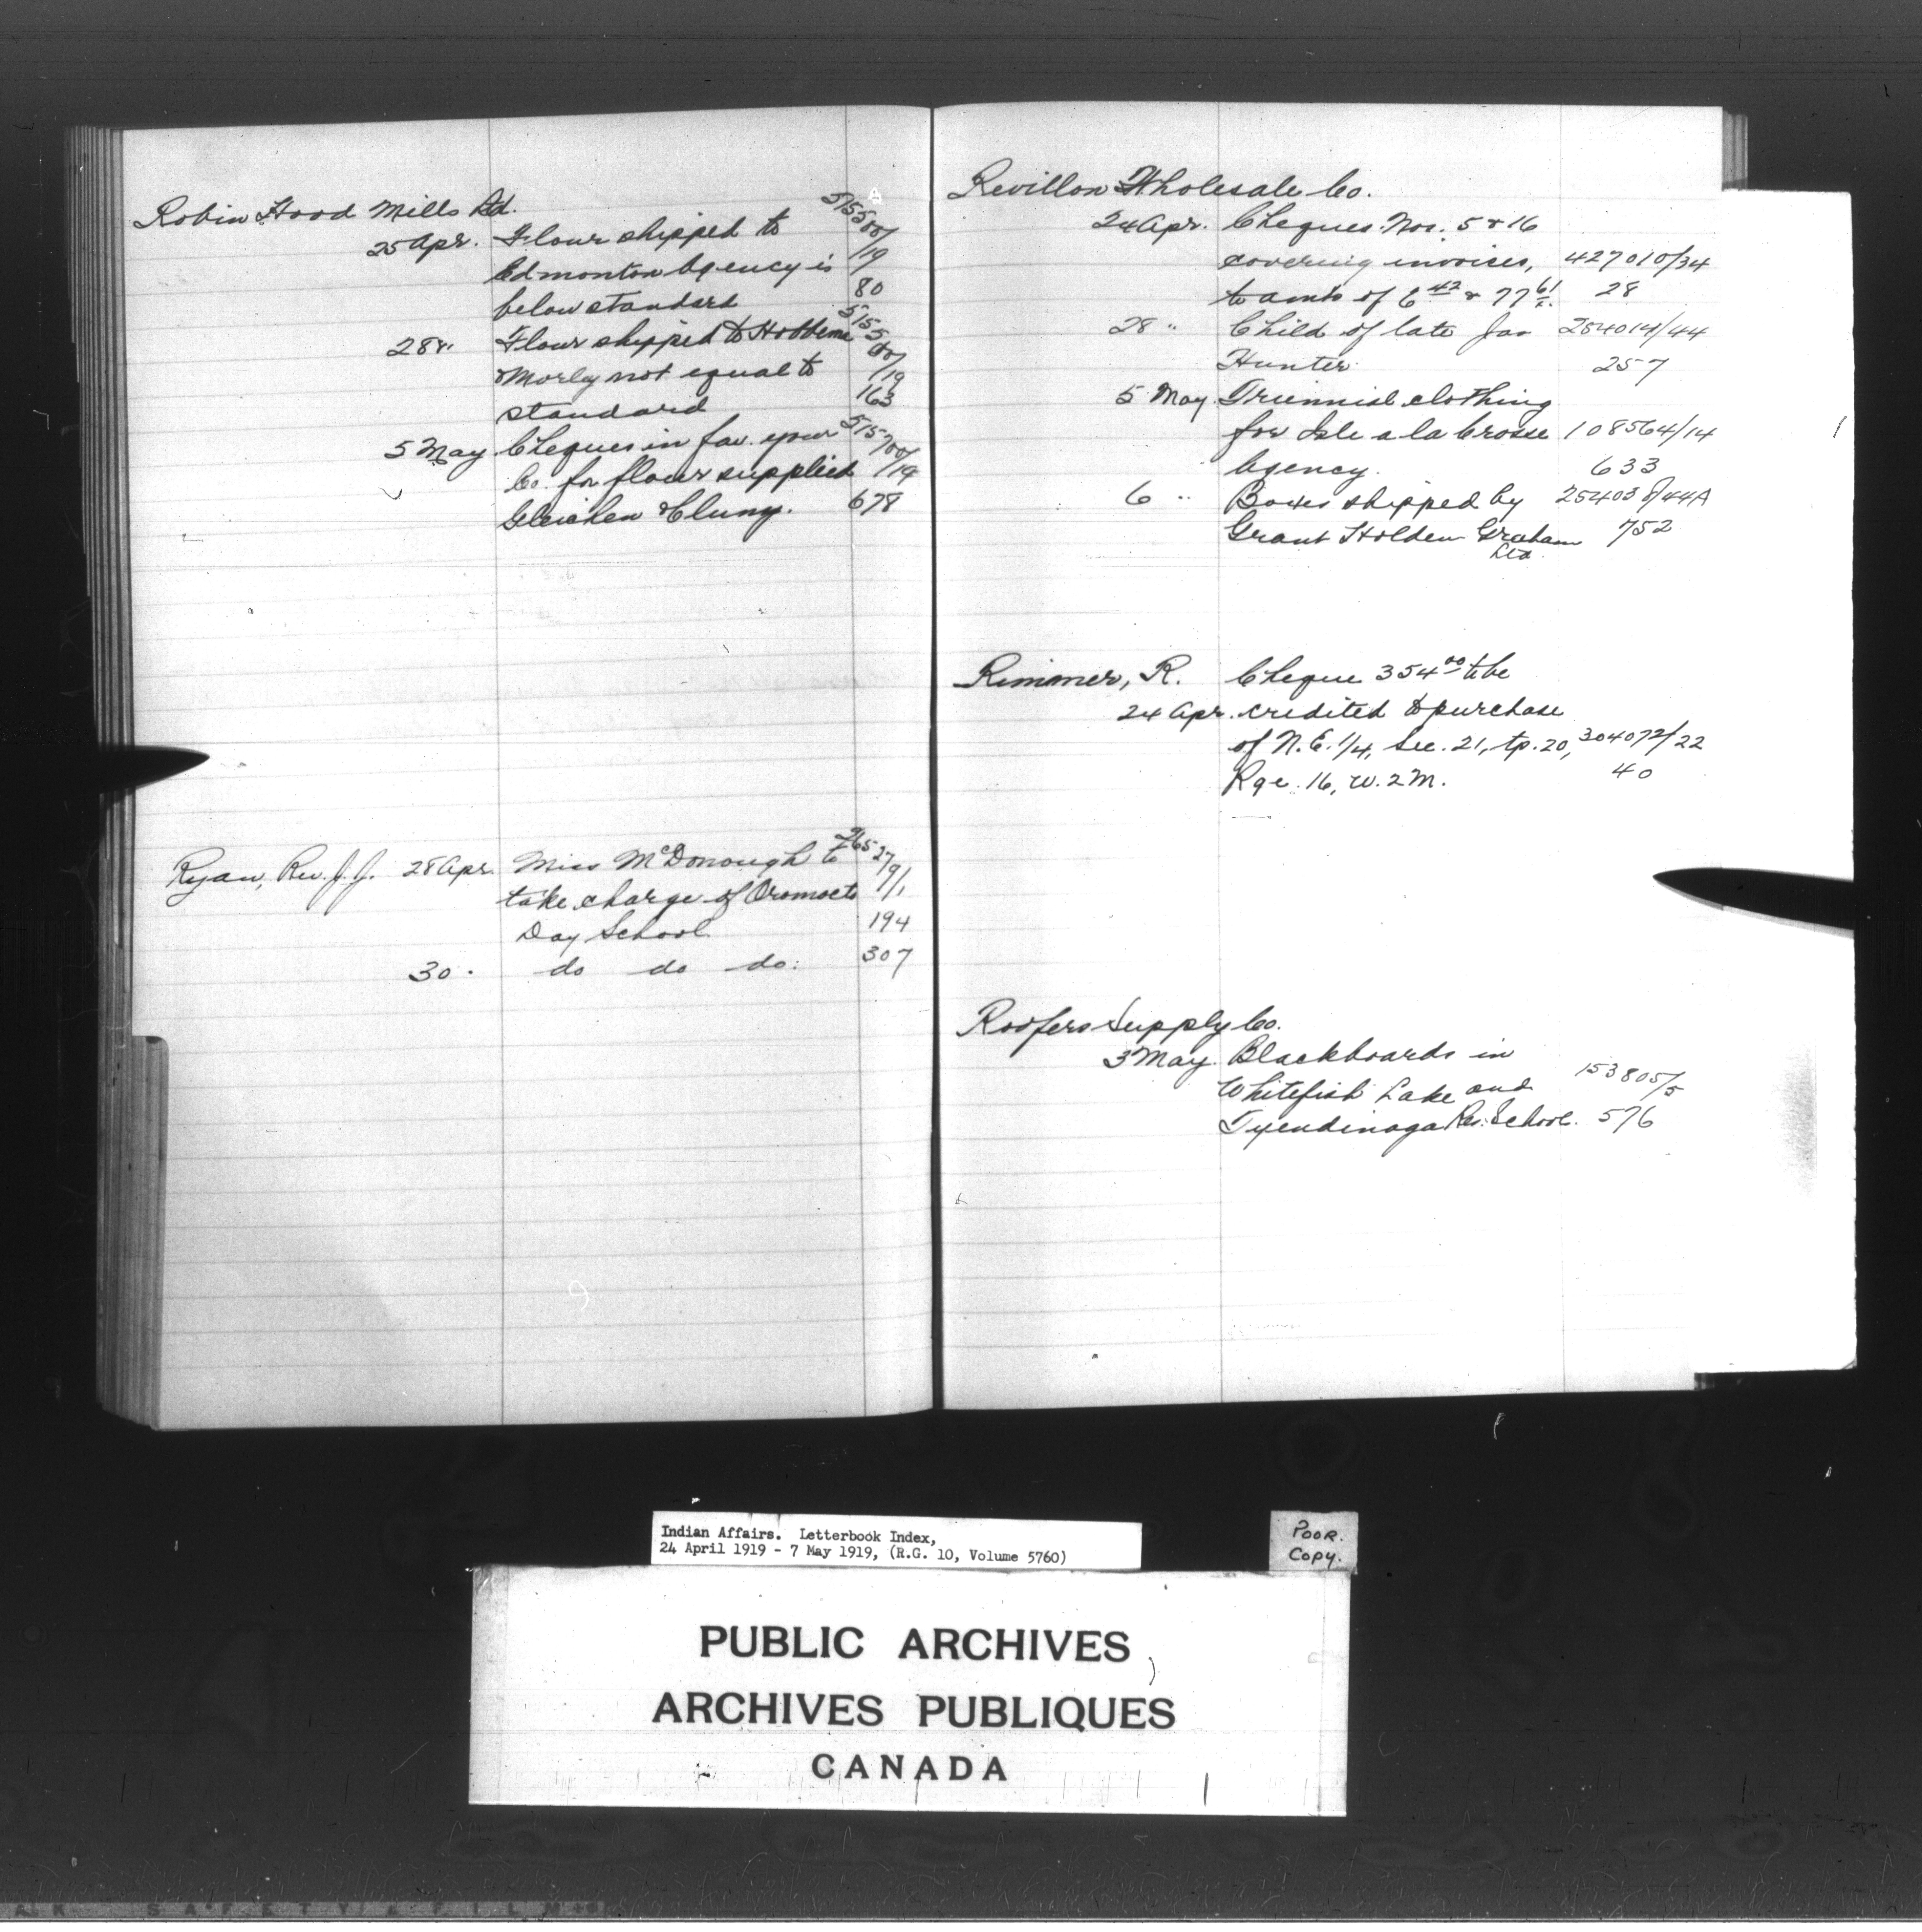 Robin Hood Mills Ltd.
25 Apr. Flour shipped to 515500/19
Edmonton Agency is
below standard 80
28 " Flour shipped to Hobbema 515500/19
& Morley not equal to
standard 163
5 May Cheques in fav. your 515700/19
Co. for flour supplied
Gleichen & Cluny. 678
Ryan, Rev. J. J. 28 Apr. Miss McDonough to 26527 9/1
take charge of Oromocto
Day School 194
30 . do do do. 307
Revillon Wholesale Co.
24 Apr. Cheques Nos. 5 & 16
covering invoices, 427010/34
to amts of 6 42 & 77 61 28
28 " Child of late Jas 254014/44
Hunter 257
5 May Triennial clothing
for Isle a la Crosse 108564/14
Agency. 633
6 " Boxes shipped by 254038/44A
Grant Holden Graham 752
Ltd.
Rimmer, R. Cheque 354 00 to be
24 Apr. credited to purchase
of N.E. 1/4, Sec. 21, tp. 20, 304072/22
Rge. 16, W. 2 M. 40
Roofers Supply Co.
3 May. Blackboards in
Whitefish Lake and 153805/5
Tyendinaga Res. School. 576
Indian Affairs. Letterbook Index,
24 April 1919 - 7 May 1919, (R.G. 10, Volume 5760)
POOR.
COPY.
PUBLIC ARCHIVES
ARCHIVES PUBLIQUES
CANADA
SAFETY FILM